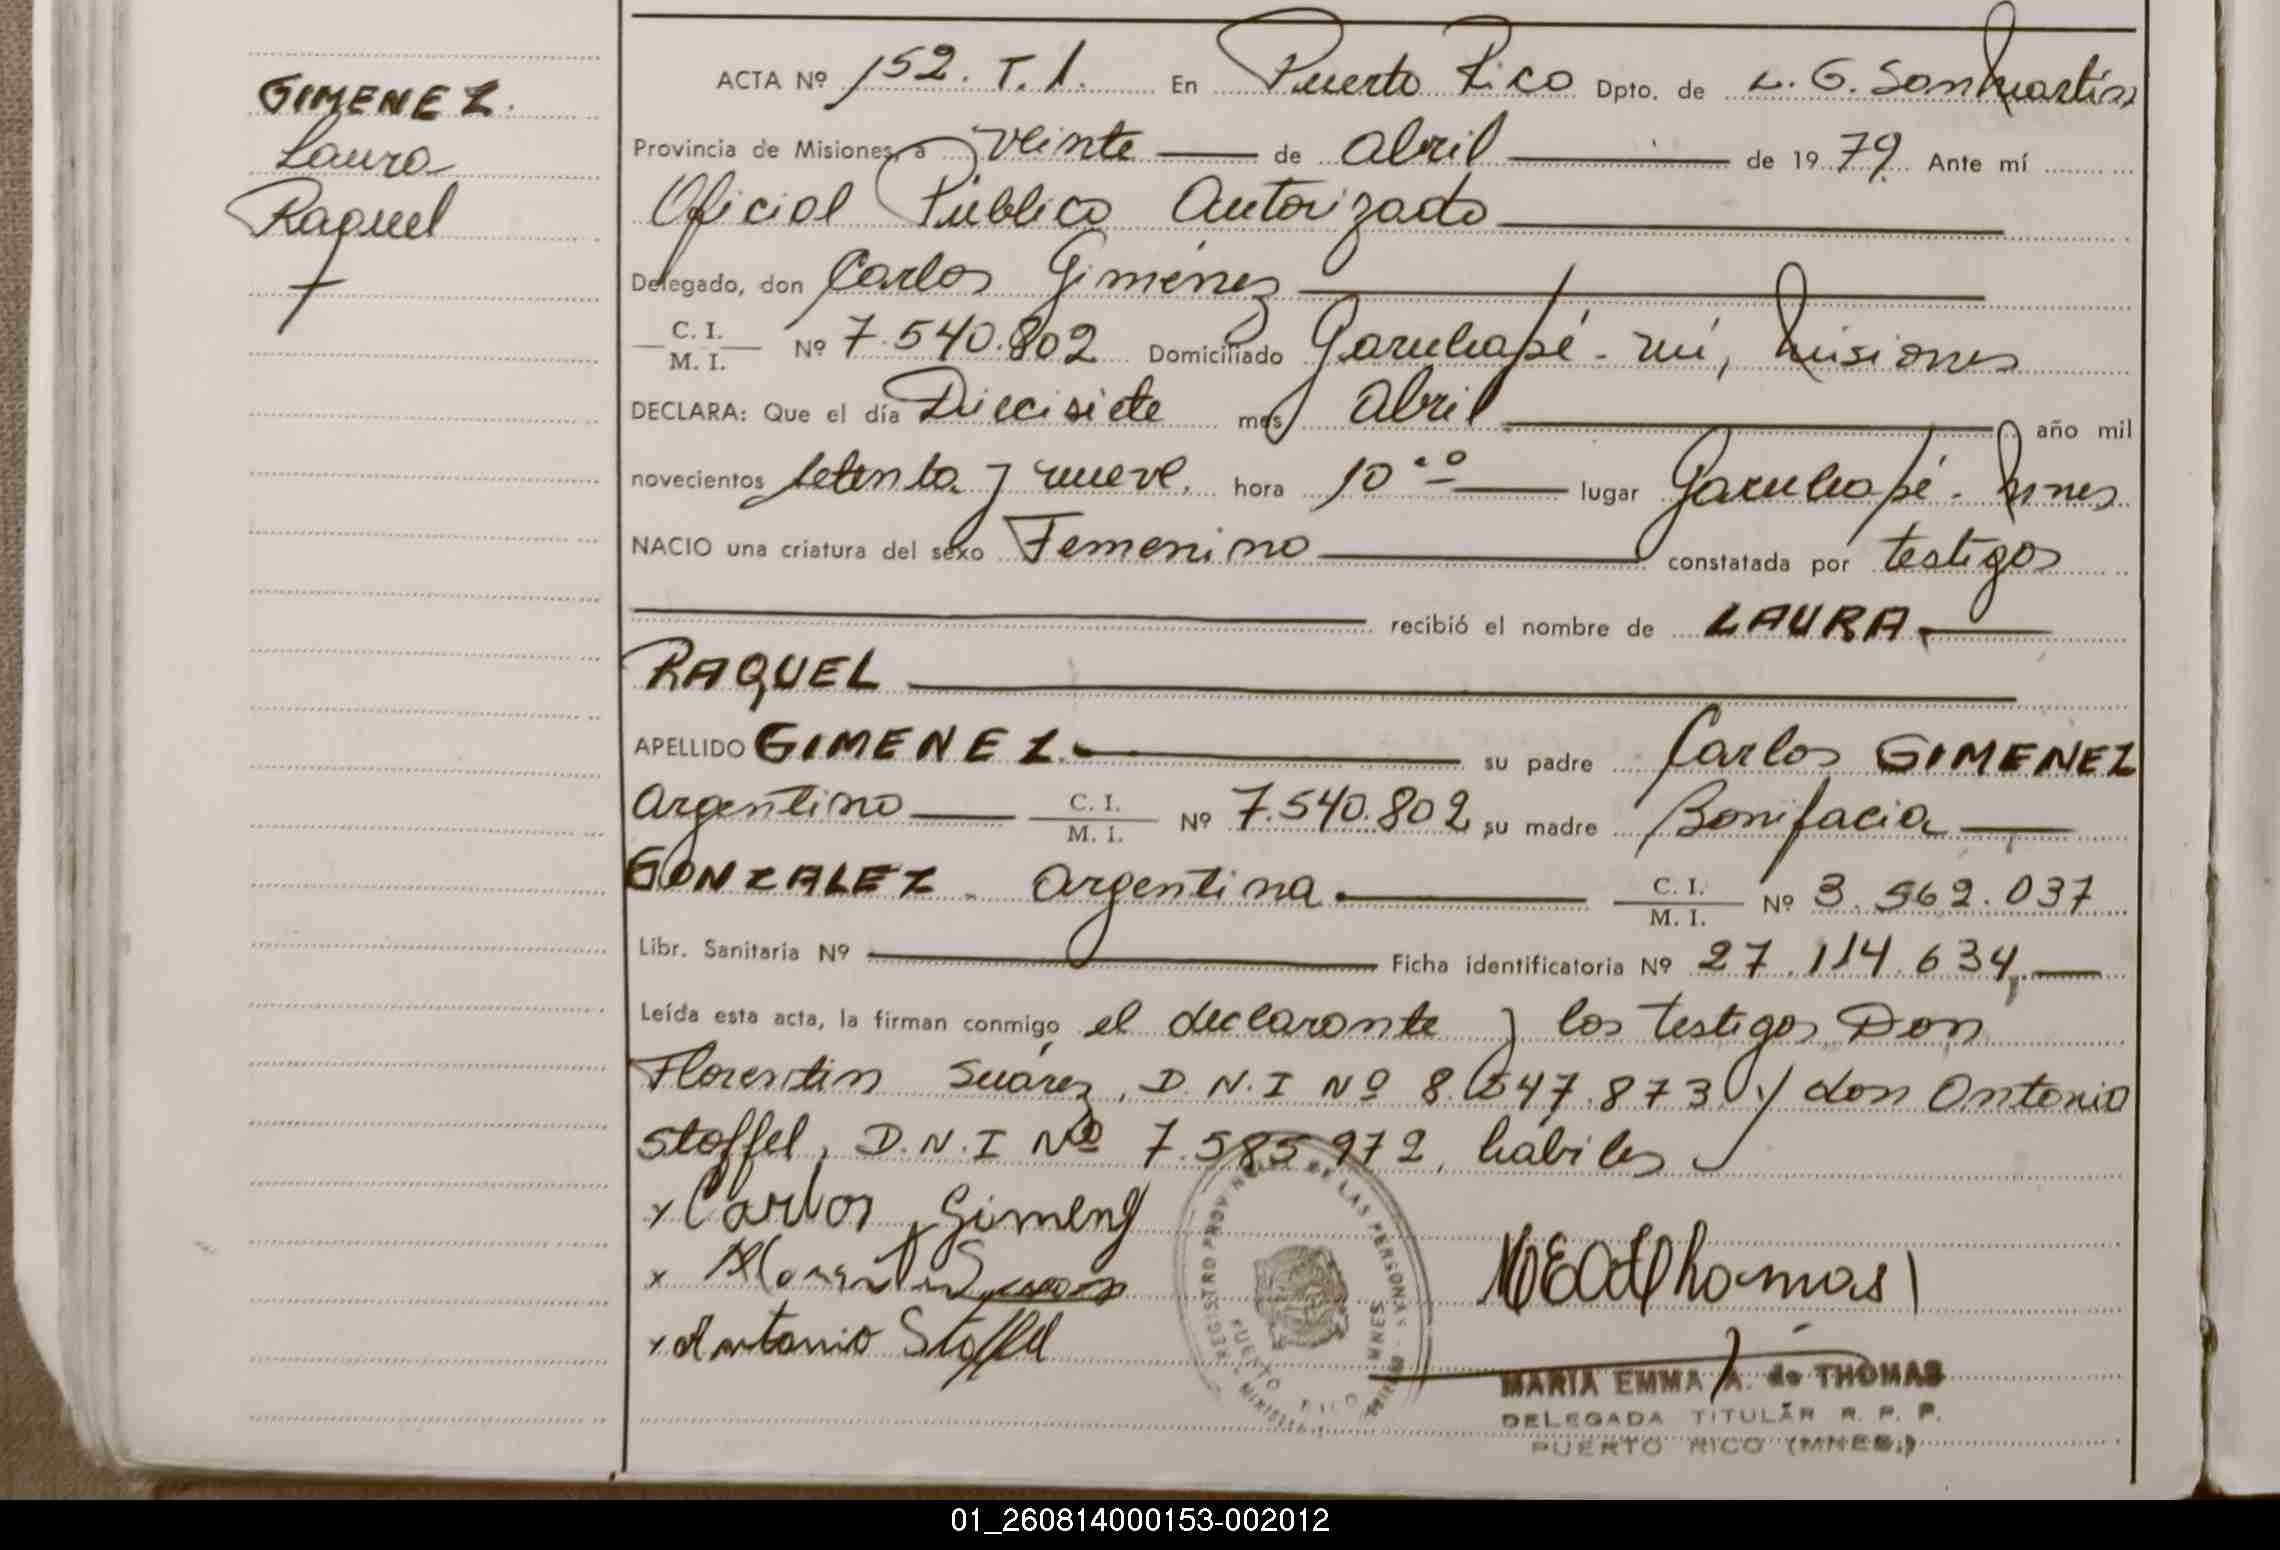 GIMENEZ.
Laura
Raquel
ACTA Nº 152. T. 1. En Puerto Rico Dpto. de L. G. San Martín
Provincia de Misiones, a veinte de Abril de 1979. Ante mí
Oficial Público Autorizado
Delegado, don Carlos Giménez
C. I.
M. I. Nº 7.540.802 Domiciliado Garuhapé-mí, Misiones
DECLARA: Que el día Diecisiete mes Abril año mil
novecientos setenta y nueve. hora 10 lugar Garuhapé - Mnes
NACIO una criatura del sexo Femenino constatada por testigos
recibió el nombre de LAURA
RAQUEL
APELLIDO GIMENEZ. su padre Carlos GIMENEZ
Argentino C. I.
M. I. Nº 7.540.802, su madre Bonifacia
GONZALEZ. Argentina. C. I.
M. I. Nº 3.562.037
Libr. Sanitaria Nº Ficha identificatoria Nº 27.114.634.
Leída esta acta, la firman conmigo el declarante y los testigos Don
Florentin Suárez, D.N.I Nº 8.547.873 y don Antonio
Stoffel, D.N.I Nº 7.585.972, hábiles
x Carlos Gimenez
x Florentin Suarez
x Antonio Stoffel
MEAdeThomas
REGISTRO PROVINCIAL DE LAS PERSONAS
PUERTO RICO
MNES
MARIA EMMA A. de THOMAS
DELEGADA TITULAR R. P. P.
PUERTO RICO (MNES.)
01_260814000153-002012